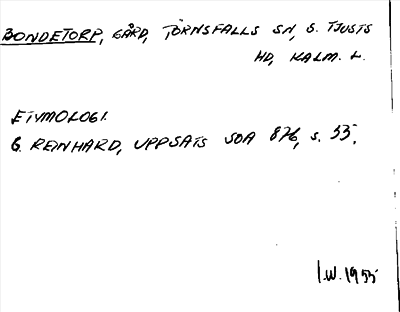 BONDETORP, GÅRD, TÖRNSFALLS SN, S. TJUSTS
HD, KALM. L.
ETYMOLOGI.
G. REINHARD, UPPSATS SOA 876, s. 55.
I.W. 1955